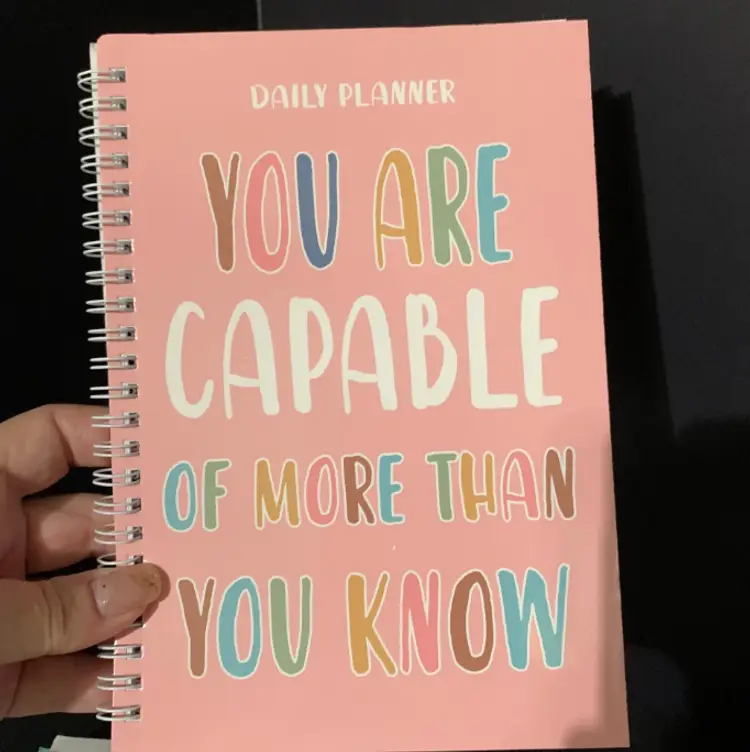 DAILY PLANNER
YOU ARE
CAPABLE
OF MORE THAN
YOU KNOW